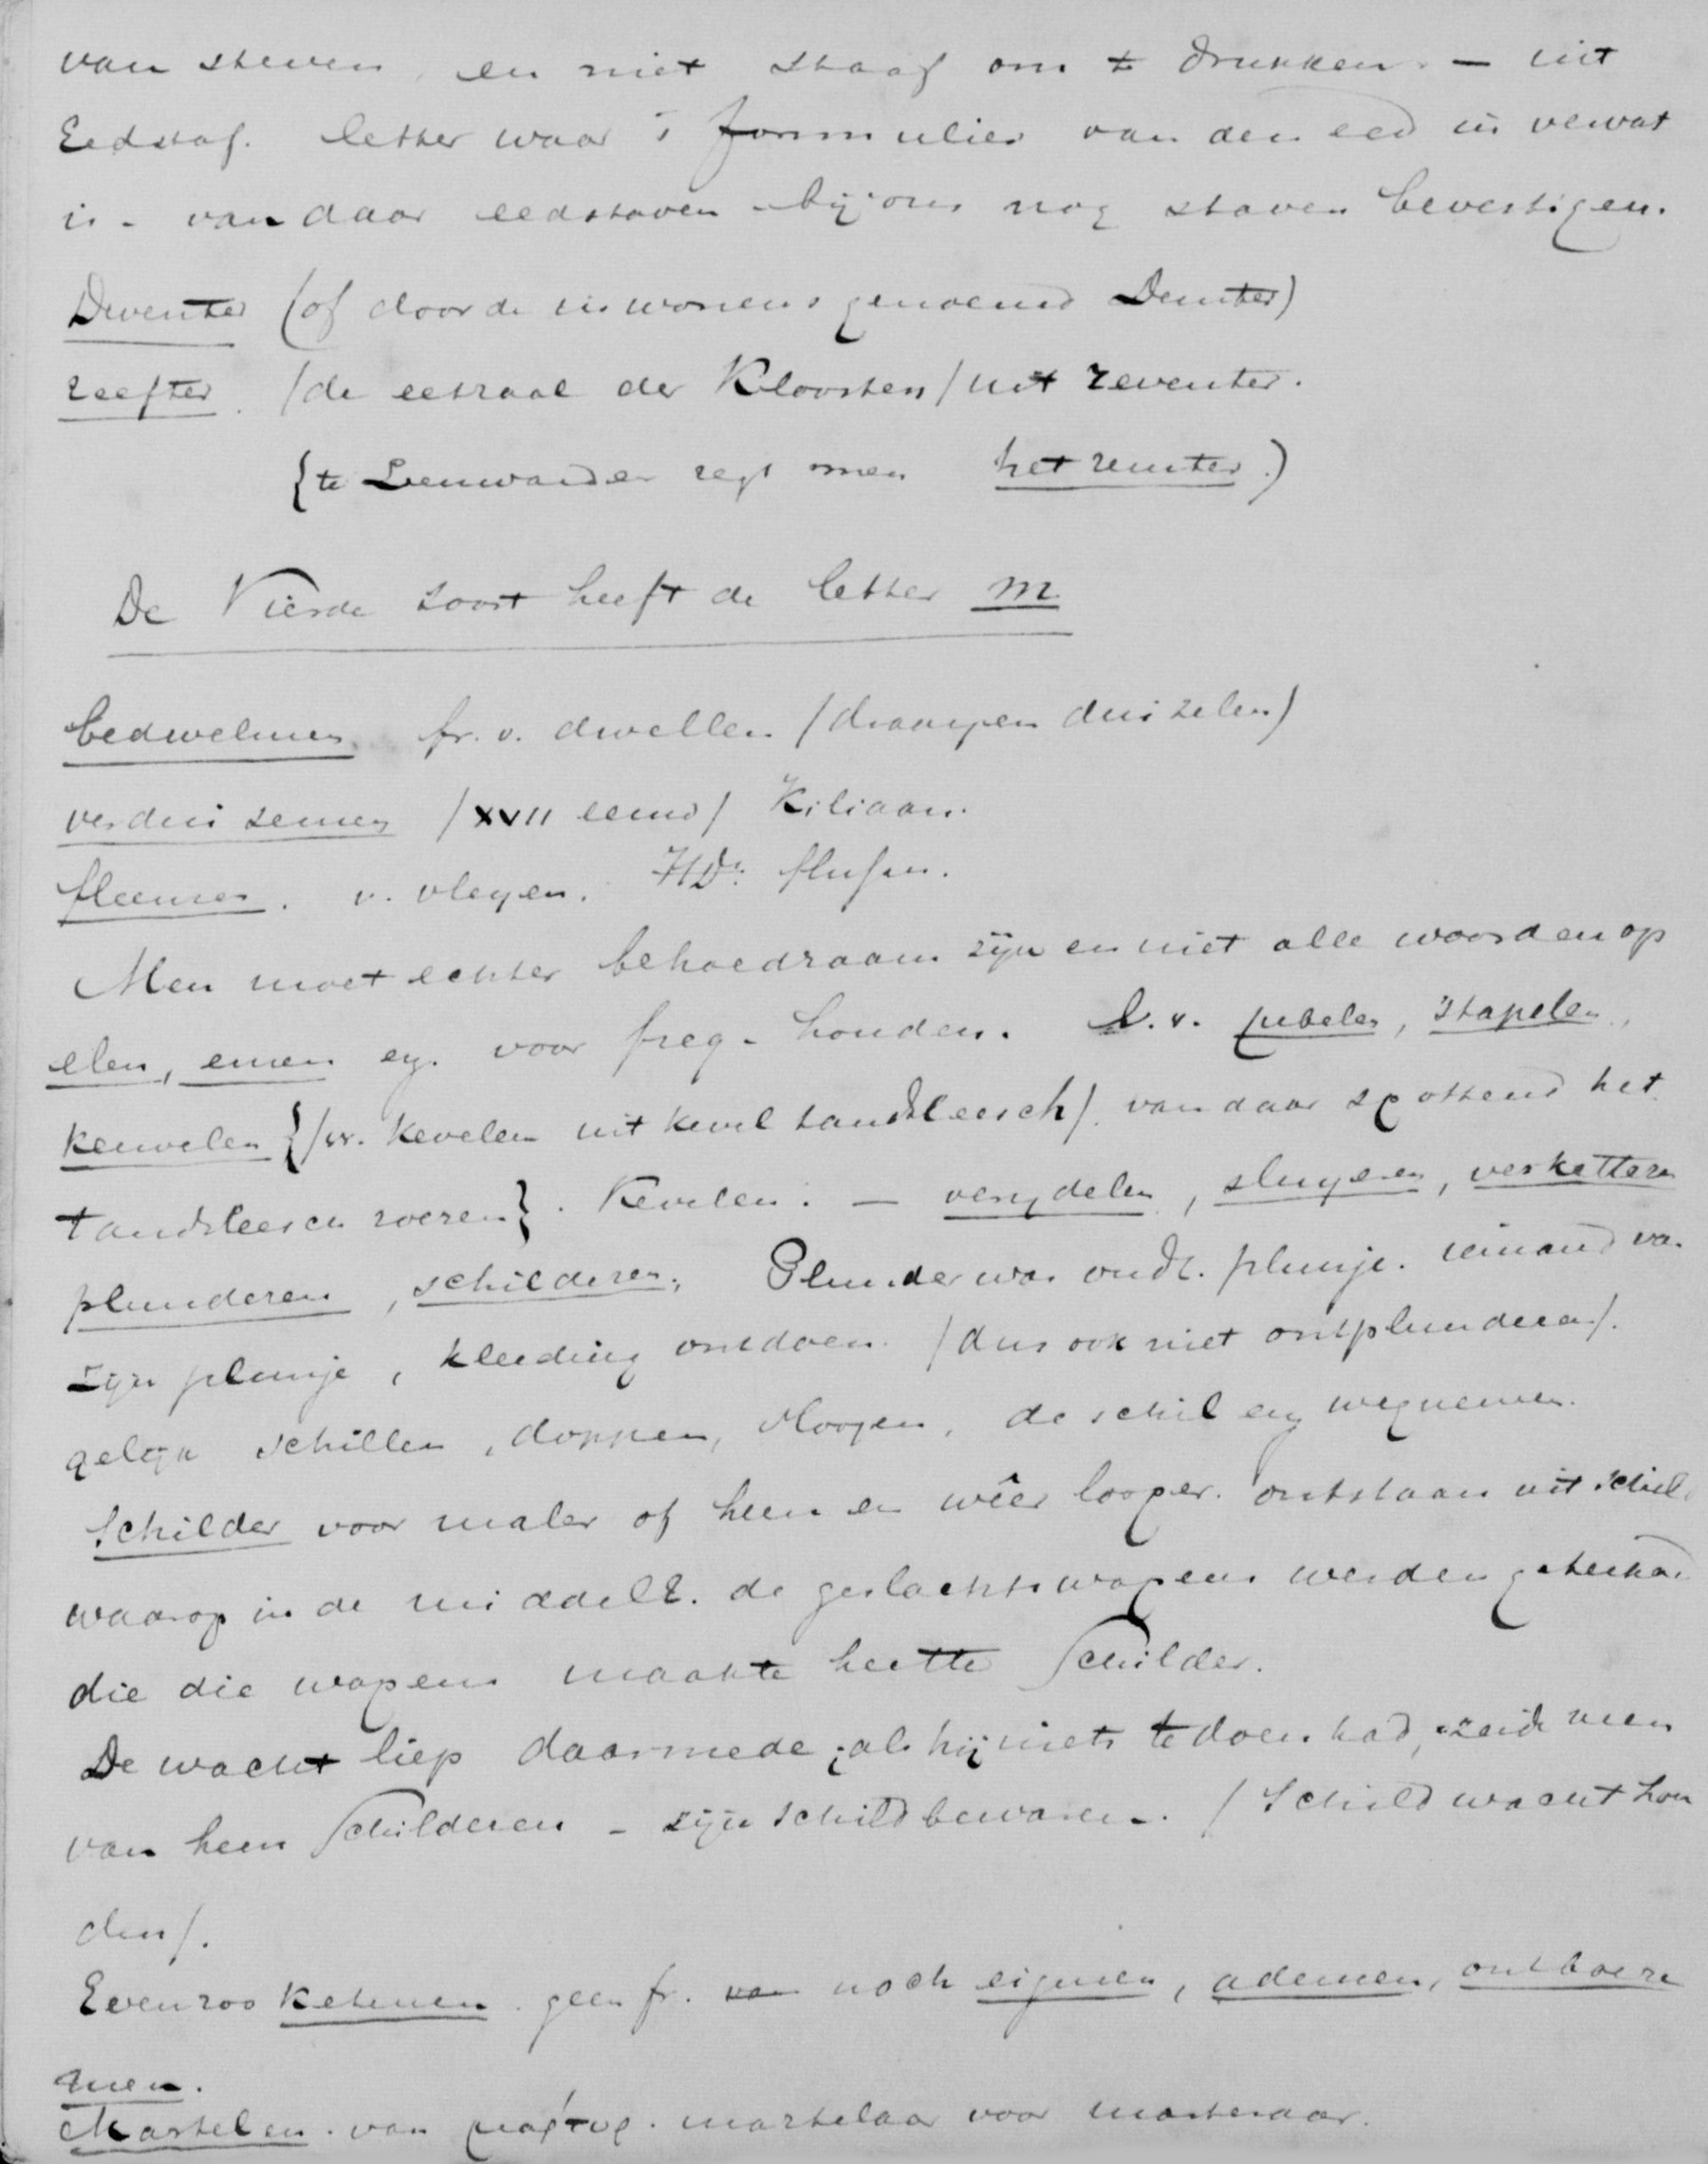 van steven, en niet staaf om te drukken. — uit
Eedstaf. letter waar 't formulier van den eed in vervat
is - van daar eedstaven - bij ons nog staven bevestigen.
Deventer (of door de inwoners genoemd Demter)
reefter. /de eetzaal der Kloosters/ uit reventer.
{te Leeuwarden zegt men het remter.)
De Vierde soort heeft de letter m
bedwelmen fr. v. dwellen /draaijen duizelen/
verduisemen /XVII eeuw/ Kiliaan.
fleemen. v. vleyen. HD:
Men moet echter behoedzaam zijn en niet alle woorden op
elen, emen en. voor freq. houden. b.v. jubelen, stapelen,
keuvelen {/vr. kevelen uit kevel tandvleesch/. van daar spottend het
tandvleesch roeren}. Kevelen. — verijdelen, sluyeren, verketteren
plunderen, schilderen. Plunder was oudt. plunje. iemand van
zijn plunje, kleeding ontdoen. /dus ook niet ontplunderen/.
gelijk schillen, doppen, de schil en wegnemen.
Schilder voor maler of heen en wêer looper. ontstaan uit schild
waarop in de middelt. de geslachtswapens werden
die die wapens maakte heette Schilder.
De wacht liep daarmede; als hij niets te doen had, zeide men
van hem Schilderen - zijn schild bewaren. / Schildwacht hou
den/.
Evenzoo ketenen. geen fr. van noch eigenen, ademen, ontboeze
men.
Martelen. van martelaar voor marteraar.